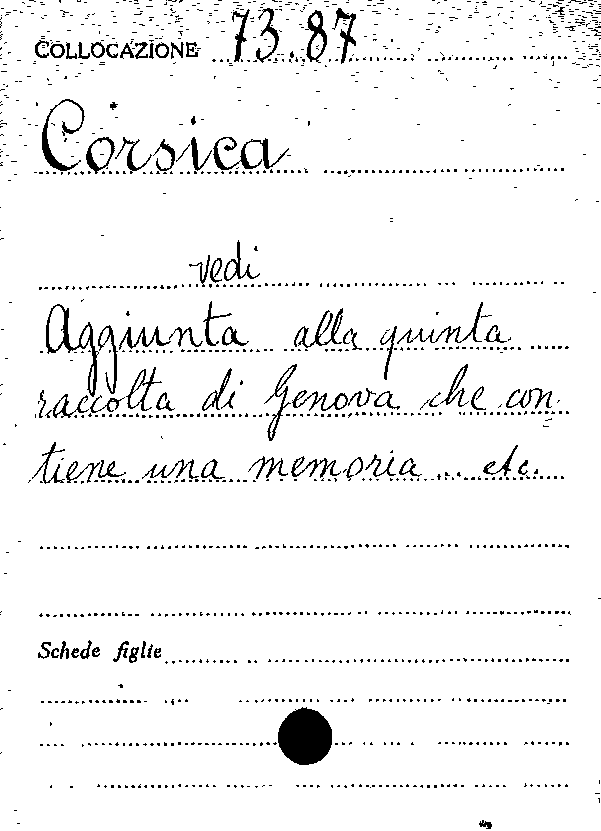 COLLOCAZIONE 73.87
Corsica
vedi
Aggiunta alla quinta
raccolta di Genova che con=
tiene una memoria ... etc.
Schede figlie